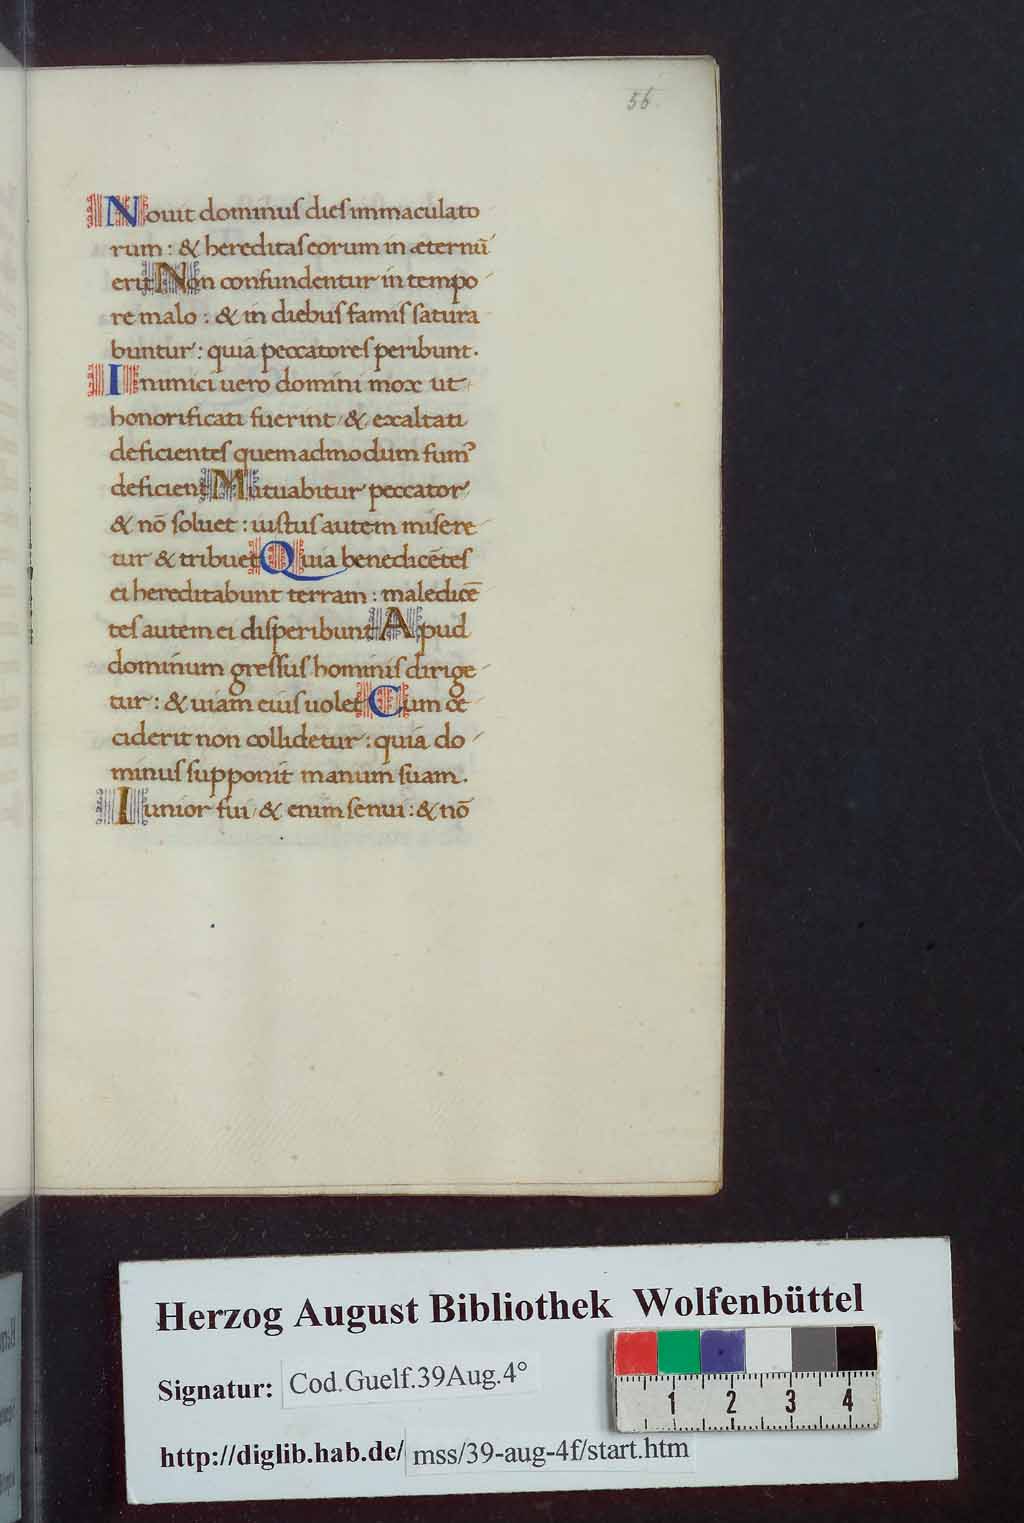 56
Nouit dominus dies immaculato
rum : & hereditas eorum in æternū
erit Non confundentur in tempo
re malo : & in diebus famis satura
buntur : quia peccatores peribunt.
Inimici uero domini mox ut
honorificati fuerint / & exaltati
deficientes quemadmodum fumꝰ
deficient Mutuabitur peccator
& nō soluet : iustus autem misere
tur & tribuet Quia benedicētes
ei hereditabunt terram : maledicē
tes autem ei disperibunt Apud
dominum gressus hominis dirige
tur : & uiam eius uolet Cum ce
ciderit non collidetur : quia do
minus supponit manum suam.
Iunior fui / & enim senui : & nō
Herzog August Bibliothek Wolfenbüttel
Signatur: Cod.Guelf.39Aug.4°
1 2 3 4
http://diglib.hab.de/ mss/39-aug-4f/start.htm